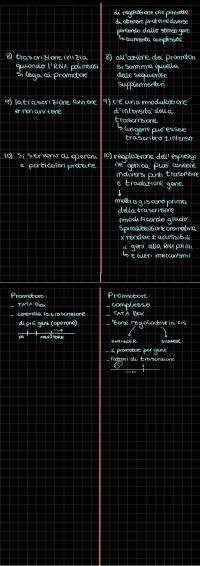 di regolazione che permette
di ottenere proteine diverse
partendo dallo stesso gene
↳ aumenta complessità
8) trascrizione inizia
quando l'RNA polimerasi
si lega al promotore
8) all'azione dei promotori
si somma quella
delle sequenze
supplementari
9) la trascrizione avviene
o non avviene
9) c'è una modulazione
d'intensità della
trascrizione
↳ un gene può essere
trascritto + intenso
10) si servono di operoni
e particolari proteine
10) regolazione dell'espressione
genica può avvenire
in diversi punti trascrizione
e traduzione gene
↓
molti agiscono prima
della trascrizione
modificando grado
spiralizzazione cromatina
x rendere + accessibili
i geni alla RNA polim
↳ e altri meccanismi
Promotore:
- TATA Box
- controlla la trascrizione
di più geni (operone)
Promotore:
- complesso
- TATA Box
- Zone regolative in cis
ENHANCER SILENCER
- 1 promotore per gene
- fattori di trascrizione